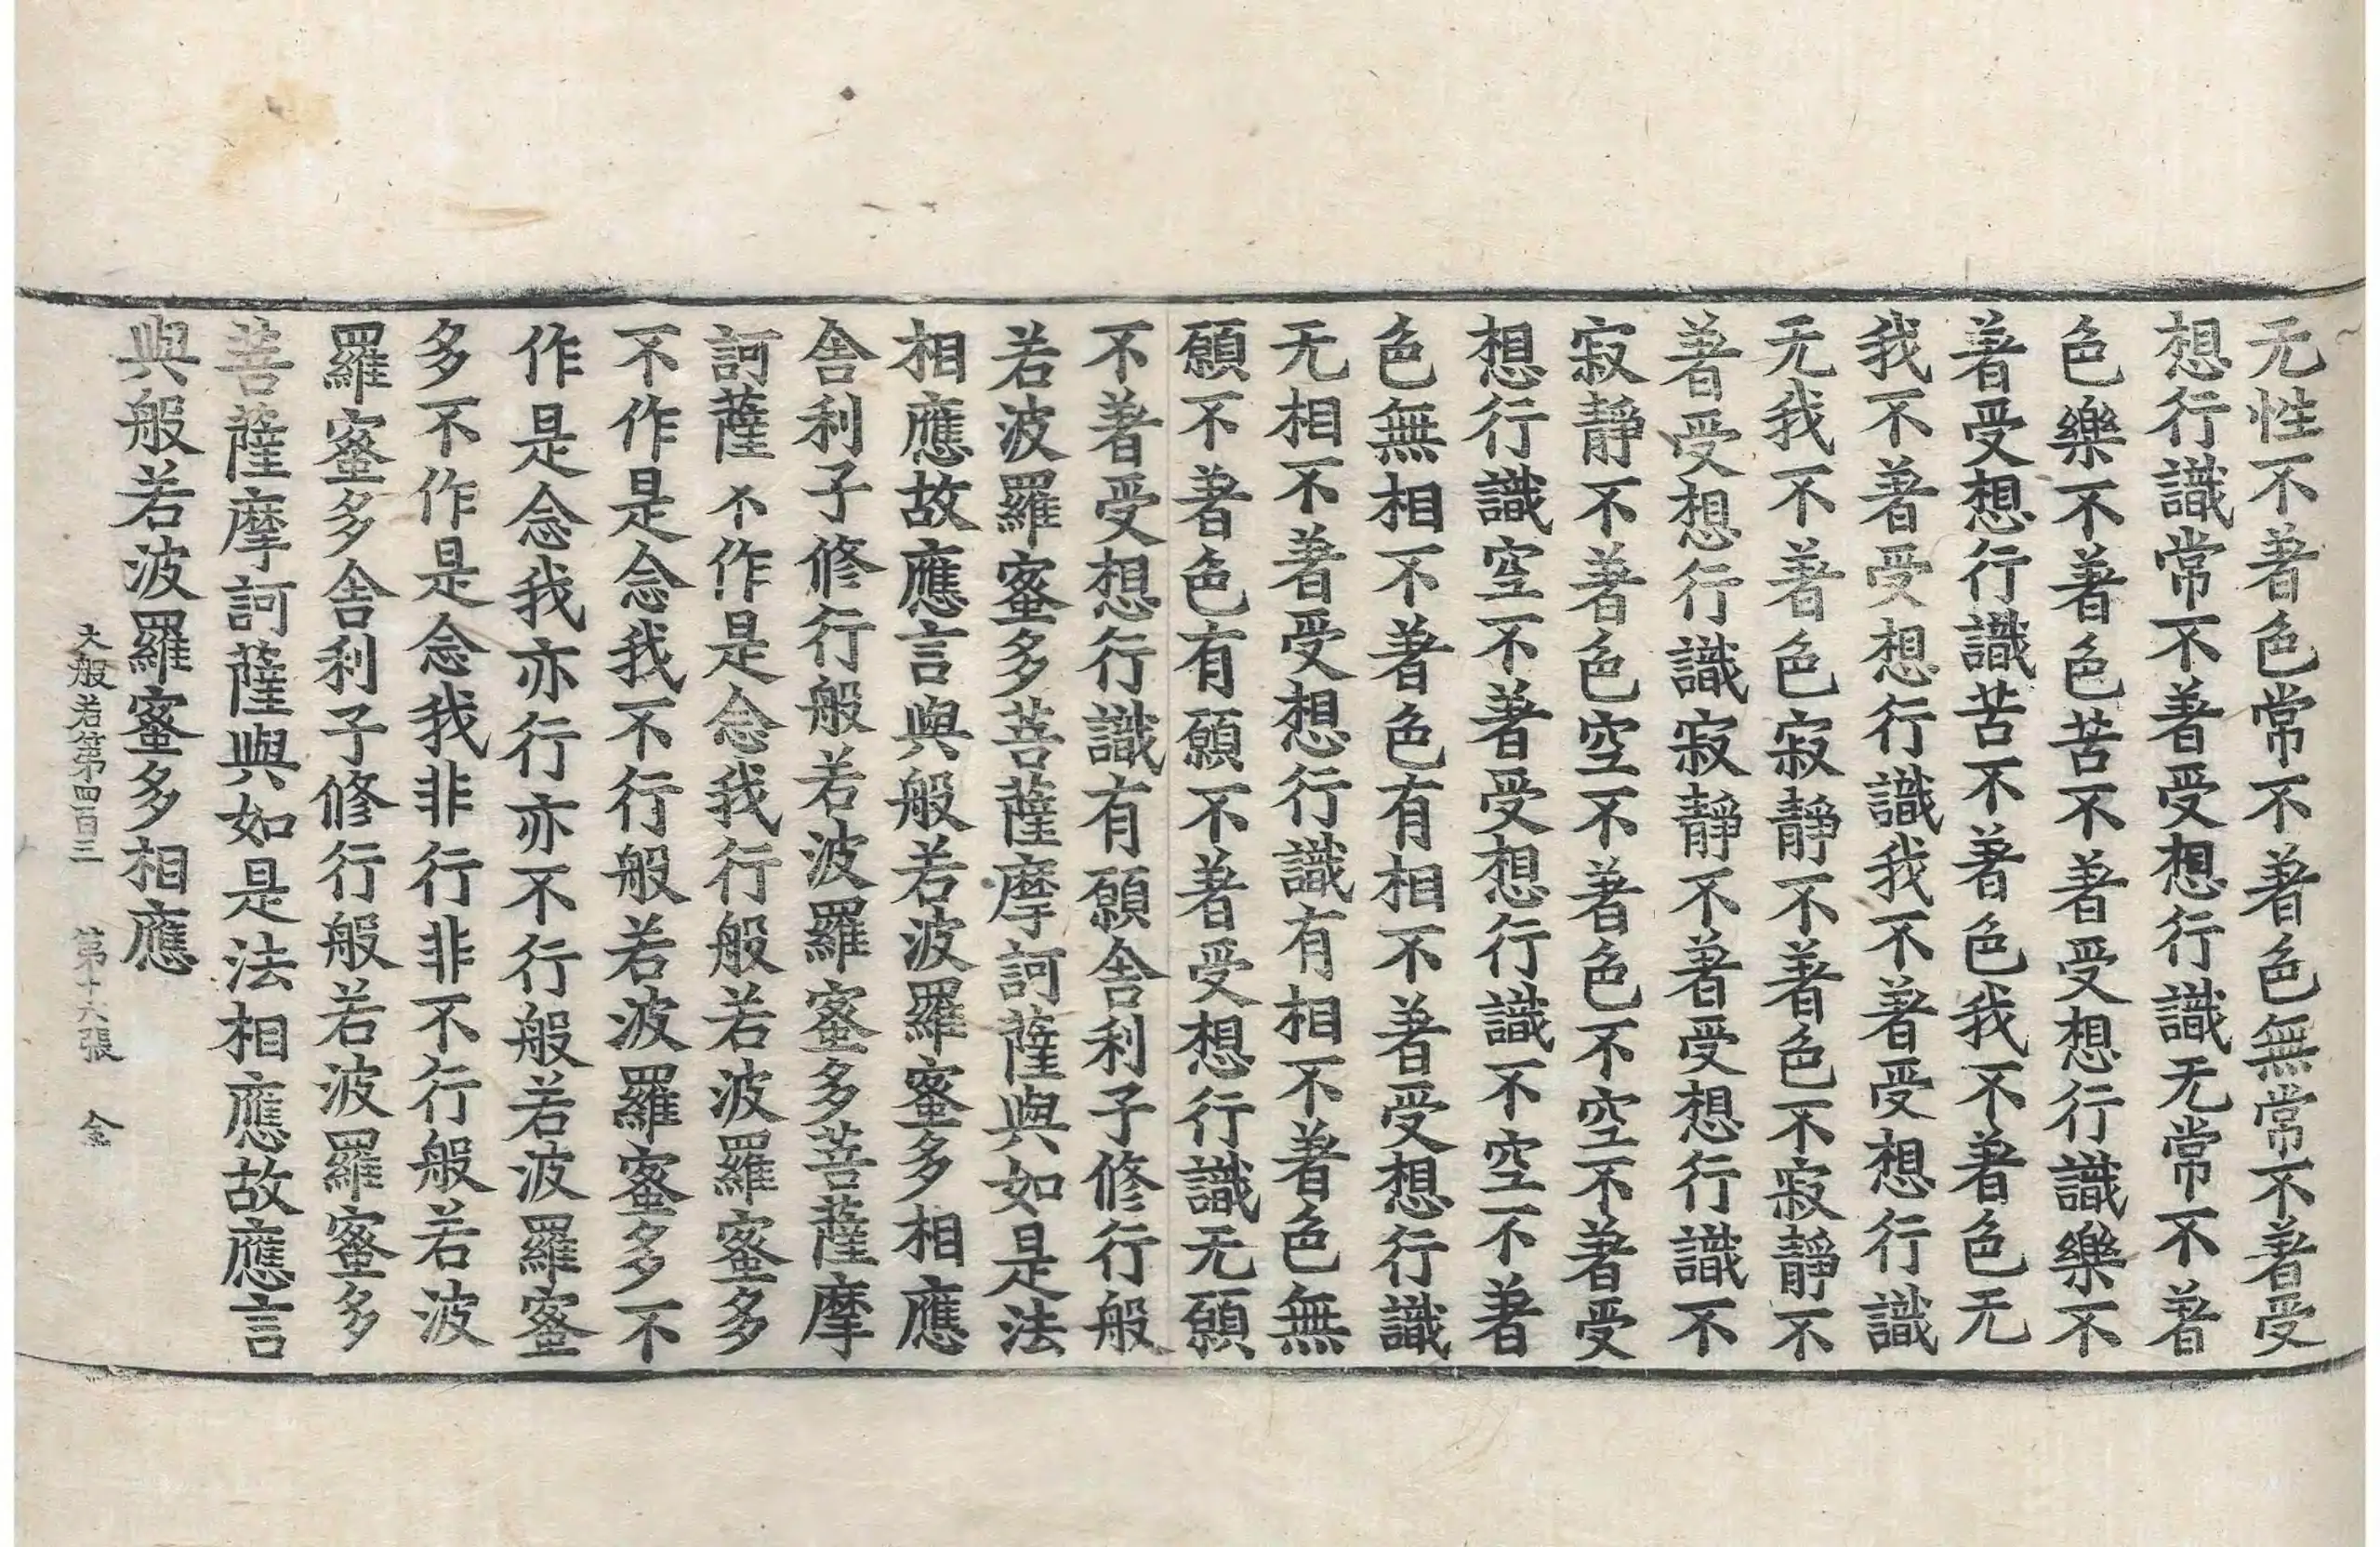 无性不著色常不著色無常不著受
想行識常不著受想行識无常不著
色樂不著色苦不著受想行識樂不
著受想行識苦不著色我不著色无
我不著受想行識我不著受想行識
无我不著色寂靜不著色不寂靜不
著受想行識寂靜不著受想行識不
寂靜不著色空不著色不空不著受
想行識空不著受想行識不空不著
色無相不著色有相不著受想行識
无相不著受想行識有相不著色無
願不著色有願不著受想行識无願
不著受想行識有願舍利子修行般
若波羅蜜多菩薩摩訶薩與如是法
相應故應言與般若波羅蜜多相應
舍利子修行般若波羅蜜多菩薩摩
訶薩不作是念我行般若波羅蜜多
不作是念我不行般若波羅蜜多不
作是念我亦行亦不行般若波羅蜜
多不作是念我非行非不行般若波
羅蜜多舍利子修行般若波羅蜜多
菩薩摩訶薩與如是法相應故應言
與般若波羅蜜多相應
大般若第四百三 第十六張 金